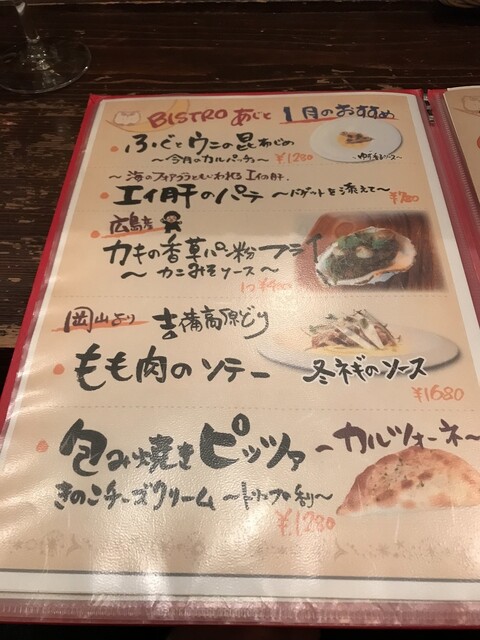 BISTRO あじと 1月のおすすめ
・ふぐとウニの昆布じめ
～今月のカルパッチョ～ ¥1280
～海のフォアグラともいわれるエイの肝。
・エイ肝のパテ ～バゲットを添えて～ ¥780
・広島産
カキの香草パン粉フライ
～カニみそソース～
1コ ¥400
岡山より 吉備高原どり
・もも肉のソテー 冬ネギのソース
¥1680
・包み焼きピッツァ ～カルツォーネ～
きのこチーズクリーム ～トリュフの香り～
¥1280